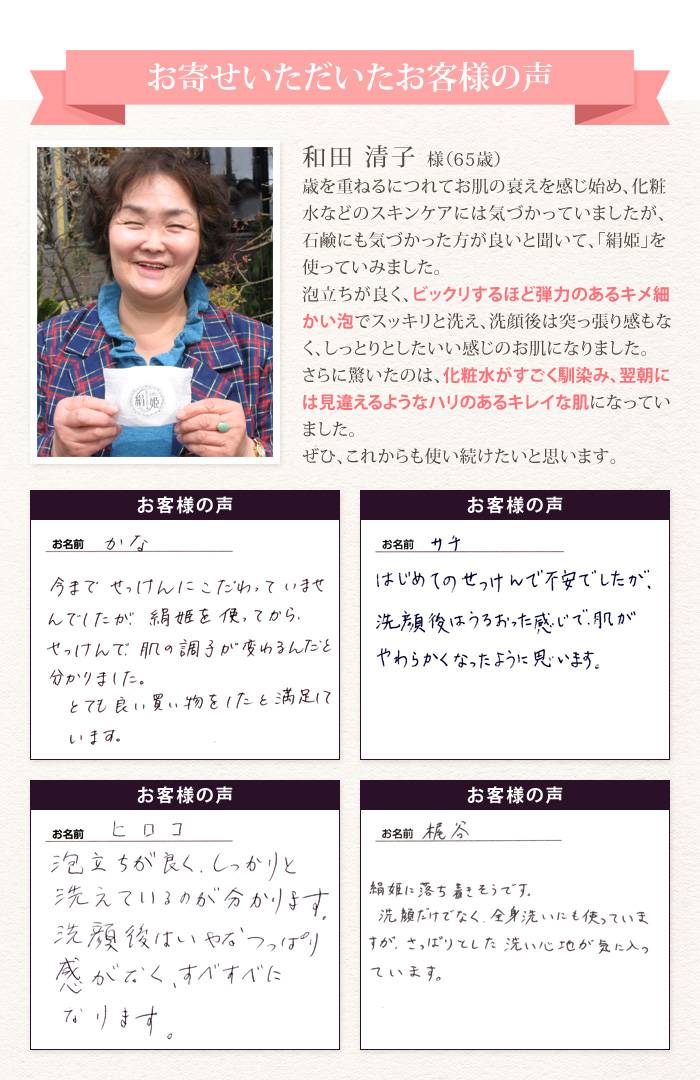 お寄せいただいたお客様の声
和田 清子 様（65歳）
歳を重ねるにつれてお肌の衰えを感じ始め、化粧
水などのスキンケアには気づかっていましたが、
石鹸にも気づかった方が良いと聞いて、「絹姫」を
使っていみました。
泡立ちが良く、ビックリするほど弾力のあるキメ細
かい泡でスッキリと洗え、洗顔後は突っ張り感もな
く、しっとりとしたいい感じのお肌になりました。
さらに驚いたのは、化粧水がすごく馴染み、翌朝に
は見違えるようなハリのあるキレイな肌になってい
ました。
ぜひ、これからも使い続けたいと思います。
絹姫
お客様の声
お名前 かな
今まで せっけんにこだわって いませ
んでしたが 絹姫を 使ってから、
せっけんで 肌の調子が変わるんだと
分かりました。
とても良い買い物をしたと満足して
います。
お客様の声
お名前 サチ
はじめてのせっけんで不安でしたが、
洗顔後はうるおった感じで、肌が
やわらかくなったように思います。
お客様の声
お名前 ヒロコ
泡立ちが良く、しっかりと
洗えているのが分かります。
洗顔後はいやなつっぱり
感がなく、すべすべに
なります。
お客様の声
お名前 梶谷
絹姫に落ち着きそうです。
洗顔だけでなく、全身洗いにも使っていま
すが、さっぱりとした 洗い心地が気に入っ
ています。